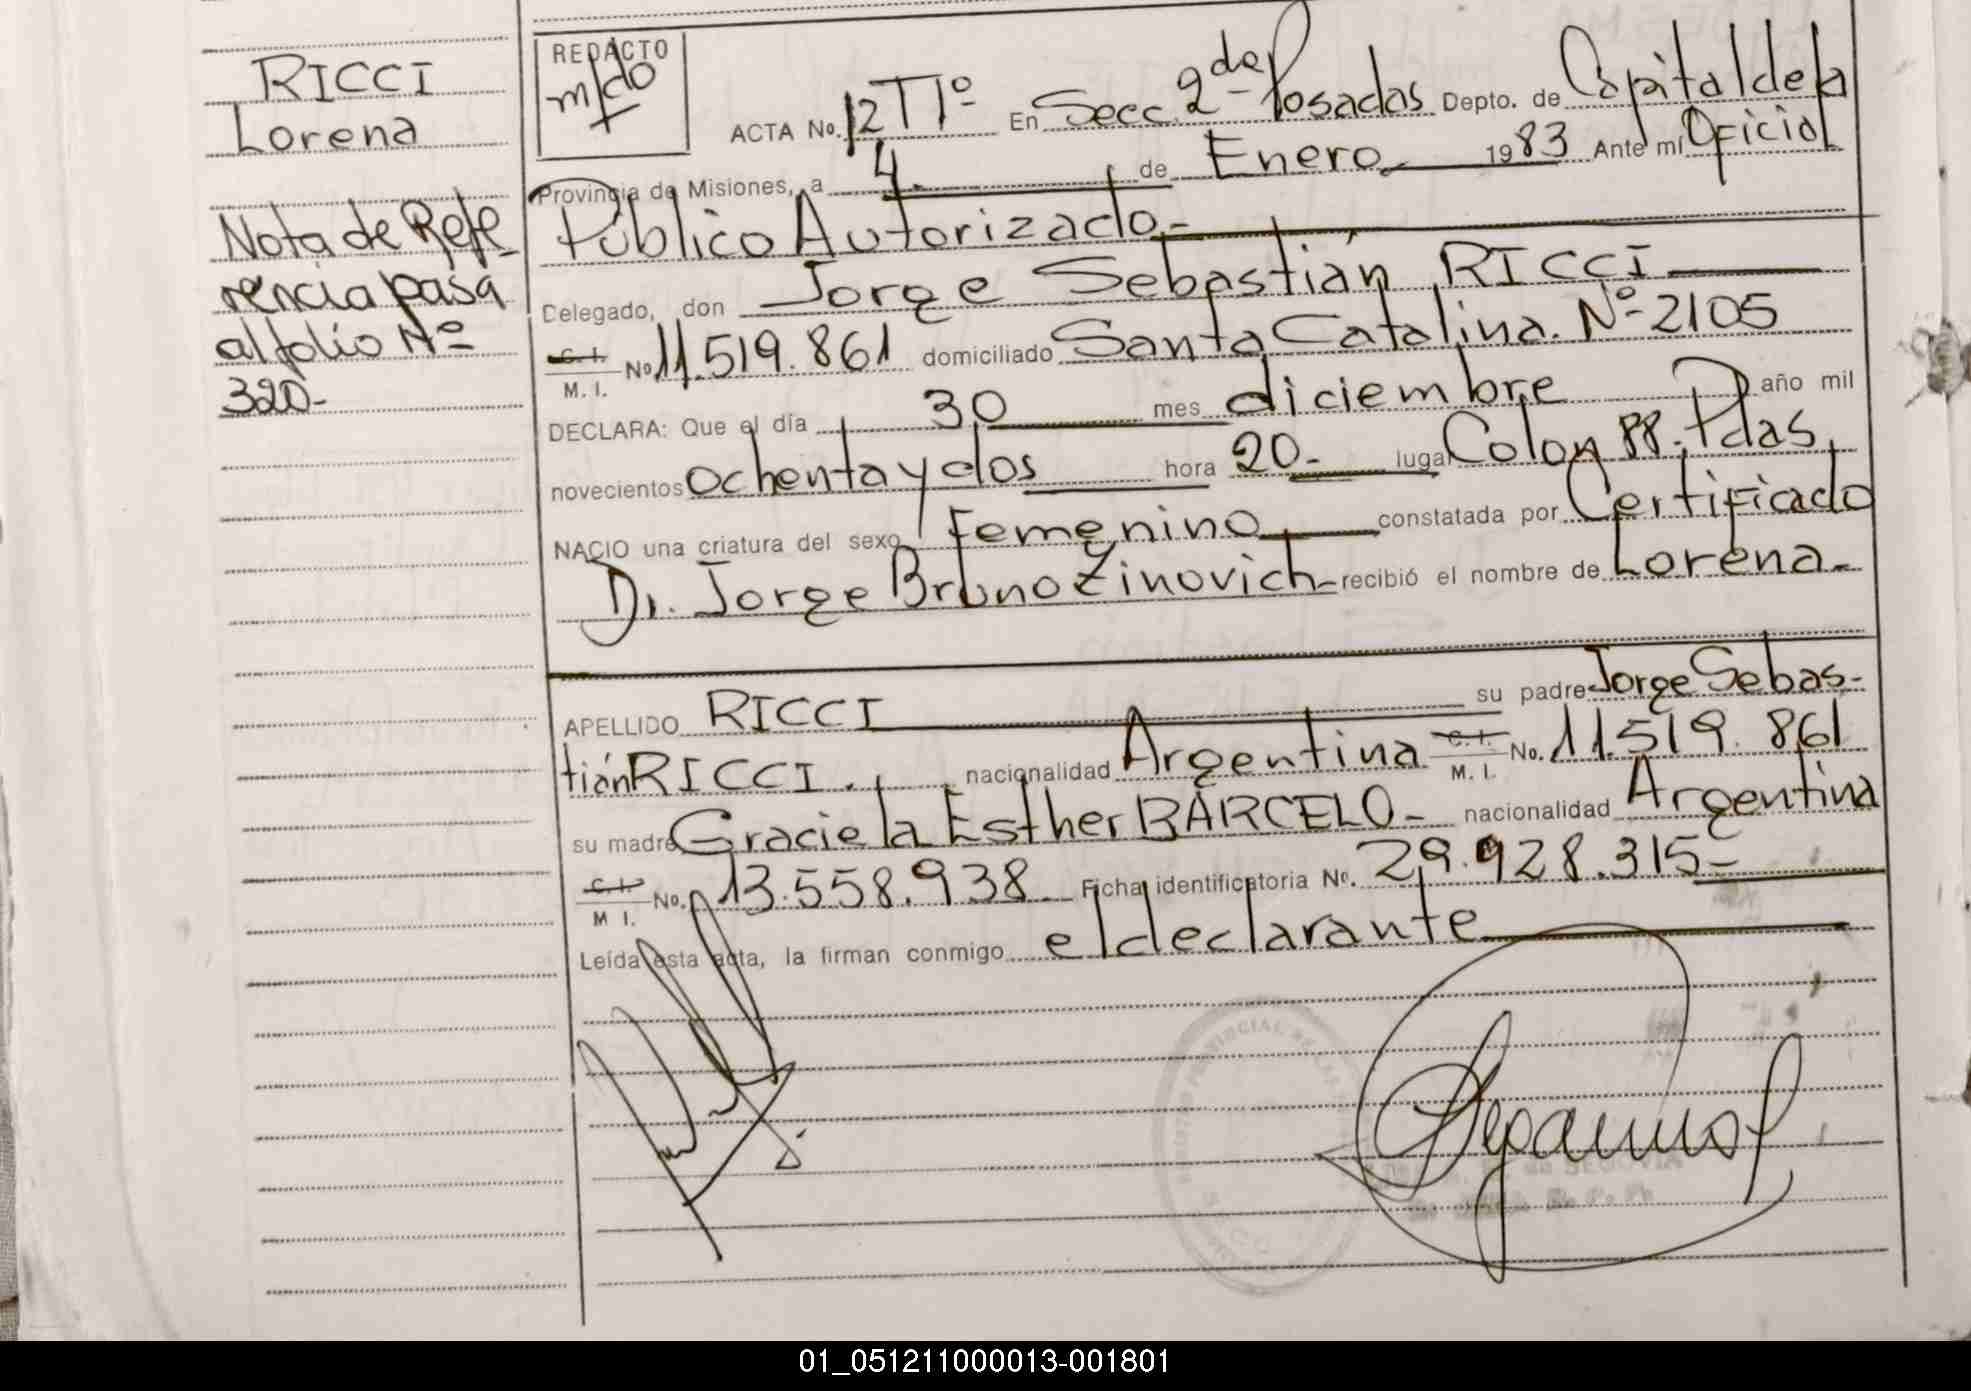 RICCI
Lorena
Nota de Refe
rencia pasa
al folio Nº
320-
REDACTO
ACTA No. 12 TIº En Secc. 2da Posadas Depto. de Capital de la
Provincia de Misiones, a 4. de Enero 1983 Ante mí Oficial
Público Autorizado.-
Delegado, don Jorge Sebastián RICCI
C. I.
M. I. No 11.519.861 domiciliado Santa Catalina. Nº 2105
DECLARA: Que el día 30 mes diciembre año mil
novecientos ochenta y dos hora 20.- lugar Colon 88. Pdas.
NACIO una criatura del sexo Femenino constatada por Certificado
Dr. Jorge Bruno Zinovich recibió el nombre de Lorena.-
APELLIDO RICCI su padre Jorge Sebas-
tián RICCI. nacionalidad Argentina C. I. M. I. No. 11.519.861
su madre Graciela Esther BARCELO- nacionalidad Argentina
C. I. M I. No. 13.558.938 Ficha identificatoria Nº. 29.928.315-
Leída esta acta, la firman conmigo el declarante
SEGOVIA
01_051211000013-001801